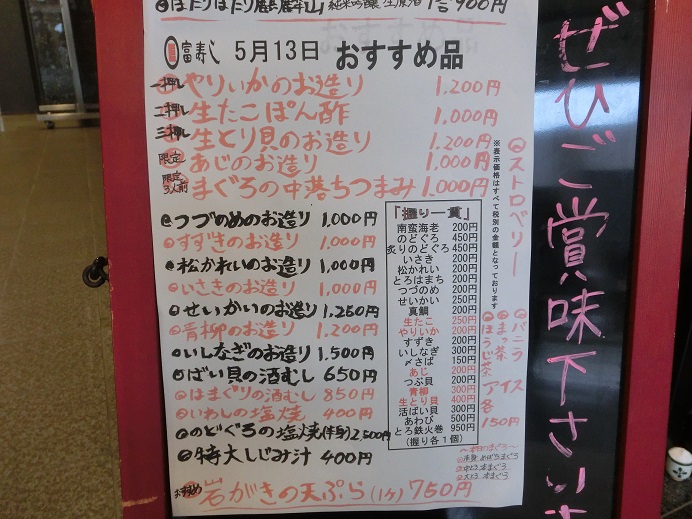 純米吟醸 生原酒 900円
富寿し 5月13日 おすすめ品
一押し やりいかのお造り 1,200円
二押し 生たこぽん酢 1,000円
三押し 生とり貝のお造り 1,200円
限定 あじのお造り 1,000円
限定3人前 まぐろの中落ちつまみ 1,000円
つづのめのお造り 1,000円
すずきのお造り 1,000円
松かれいのお造り 1,000円
いさきのお造り 1,000円
せいかいのお造り 1,250円
青柳のお造り 1,200円
いしなぎのお造り 1,500円
ばい貝の酒むし 650円
はまぐりの酒むし 850円
いわしの塩焼 400円
のどぐろの塩焼(半身) 2,500円
特大しじみ汁 400円
おすすめ 岩がきの天ぷら(1ケ) 750円
「握り一貫」
南蛮海老 200円
のどぐろ 450円
炙りのどぐろ 450円
いさき 200円
松かれい 200円
とろはまち 200円
つづのめ 200円
せいかい 250円
真鯛 200円
生たこ 250円
やりいか 200円
すずき 200円
いしなぎ 300円
〆さば 150円
あじ 200円
つぶ貝 200円
青柳 300円
生とり貝 400円
活ばい貝 300円
あわび 500円
とろ鉄火巻 950円
(握り各1個)
※表示価格はすべて税別の金額となっております
ストロベリー
バニラ
まっ茶
ほうじ茶
アイス各150円
中とろ 本まぐろ
大とろ 本まぐろ
ぜひご賞味下さいませ